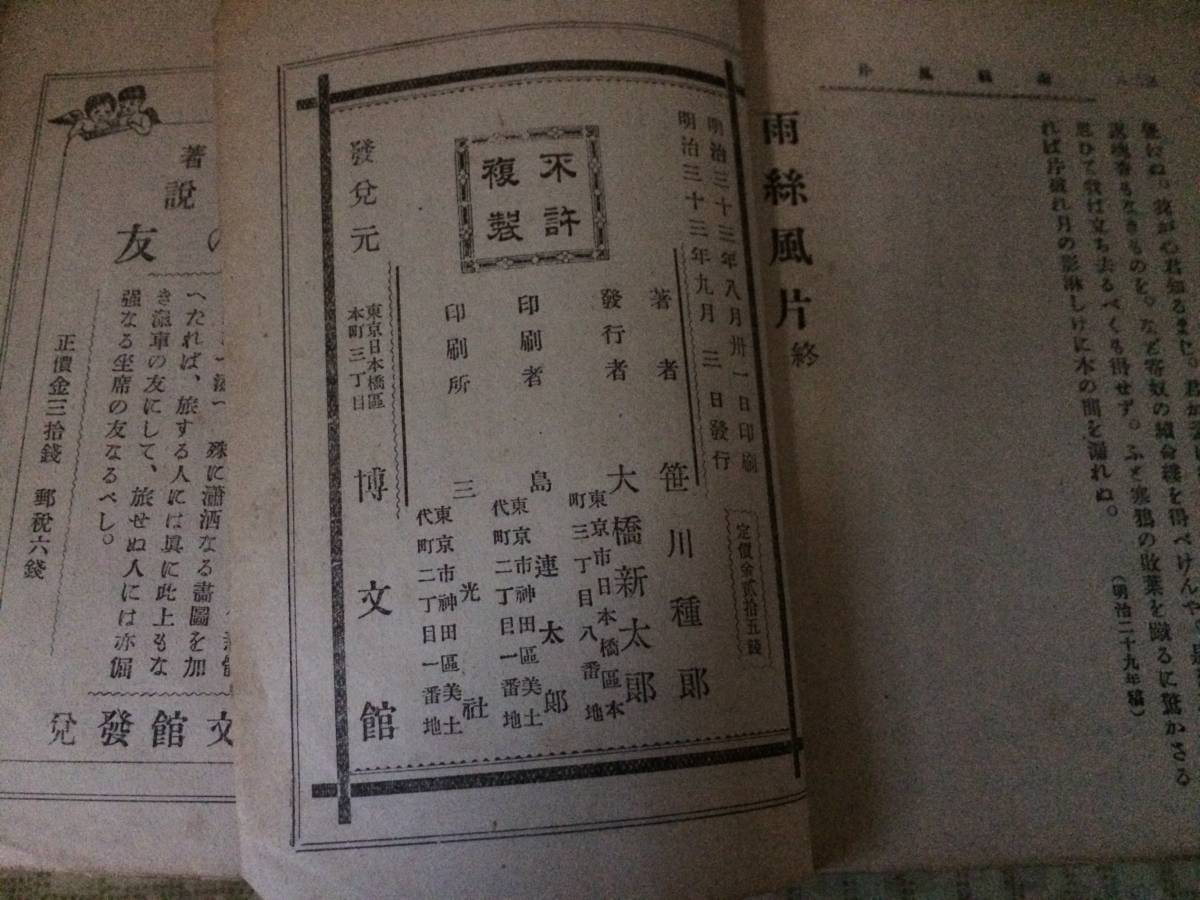 雨絲風片
我が心君知るまじ。
說ふ香もなきものを。など寄奴の續命縷を得べけんや。
思ひて我は立ち去るべくも得せず。ふと寒鴉の敗葉を蹴るに驚かさる
れば片破れ月の影淋しげに木の間を漏れぬ。
(明治二十九年稿)
雨絲風片終
明治三十三年八月卅一日印刷
明治三十三年九月三日發行
定價金貳拾五錢
著者
笹川種郎
發行者
大橋新太郎
東京市日本橋區本
町三丁目八番地
印刷者
島連太郎
東京市神田區美土
代町二丁目一番地
印刷所
三光社
東京市神田區美土
代町二丁目一番地
不許
複製
發兌元
東京日本橋區
本町三丁目
博文館
著
說
の
友
殊に瀟洒なる畵圖を加
へたれば、旅する人には眞に此上もな
き滊車の友にして、旅せぬ人には亦倔
强なる坐席の友なるべし。
正價金三拾錢 郵稅六錢
文館發兌